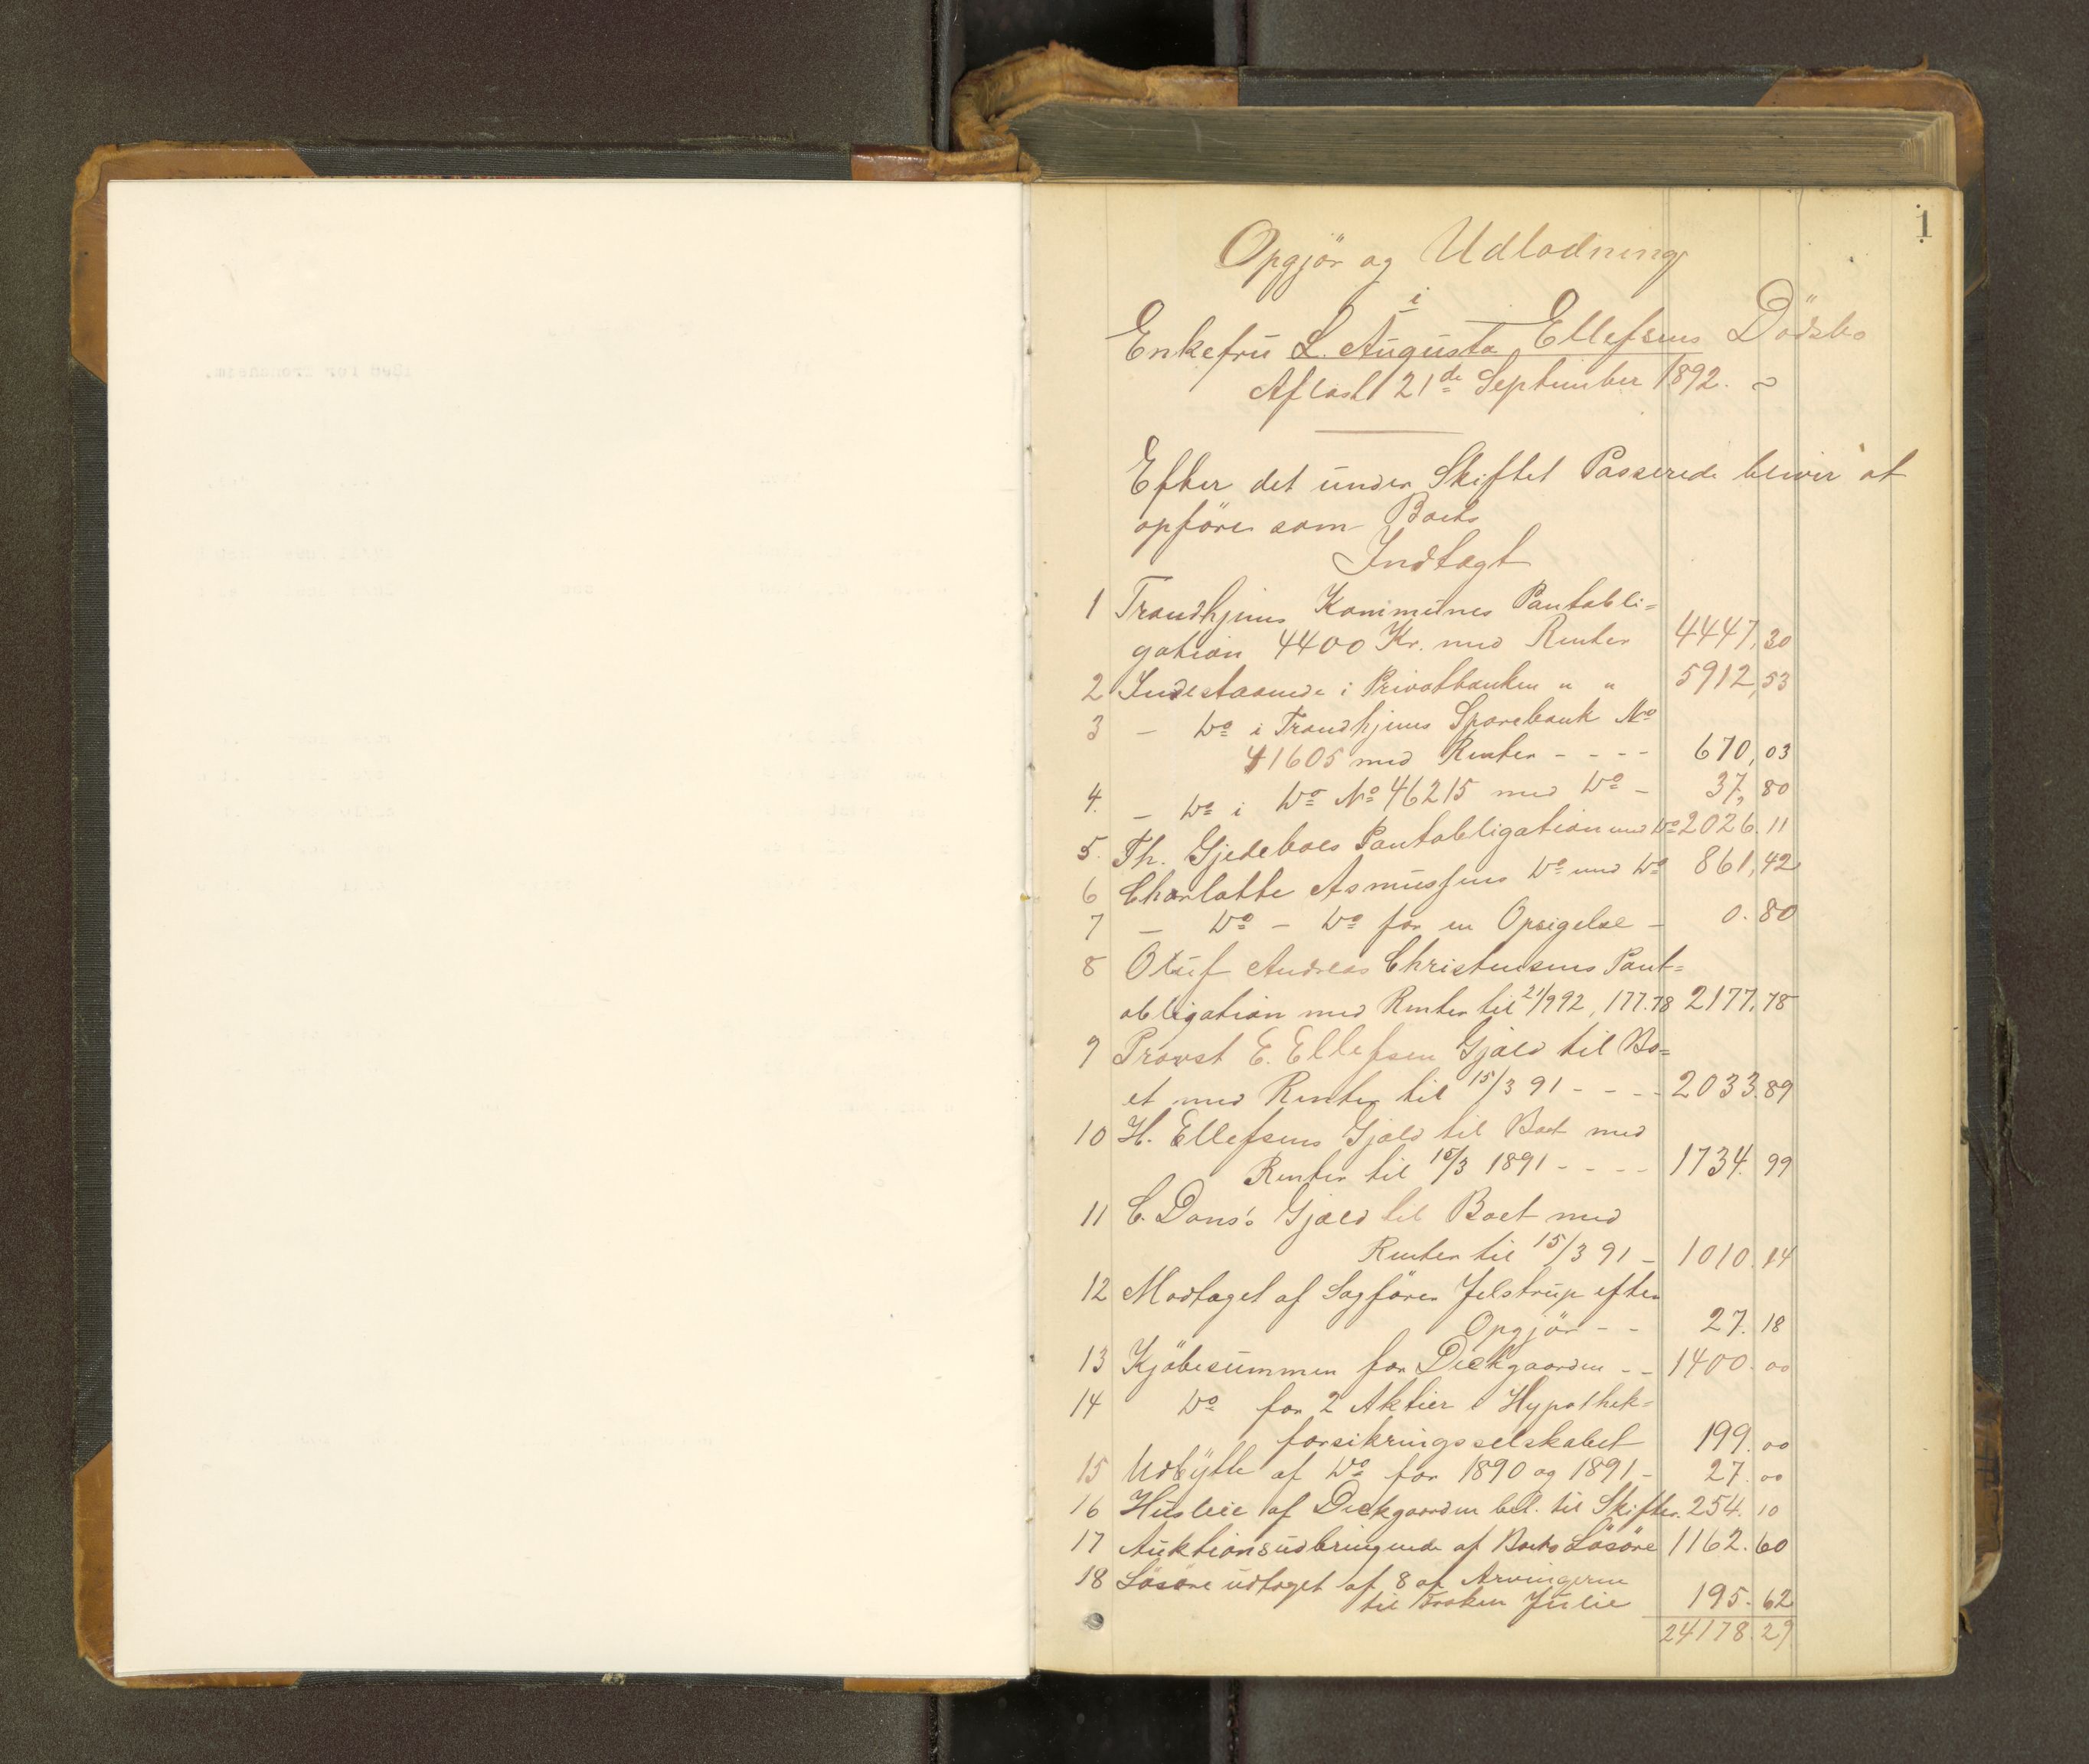 1
Opgjör og Udlodning
i
Enkefru L. Augusta Ellefsens Dödsbo
Aflast 21de September 1892.
Efter det under Skiftet Passerede bliver at
opföre som Boets
Indtægt
1 Trondhjems Kommunes Pantobli=
gation 4400 Kr. med Renter 4447,30
2 Indestaaende i Privatbanken " " 5912,53
3 - Do i Trondhjems Sparebank No
41605 med Renter - - - - 670,03
4. - Do i Do No 46215 med Do - 37,80
5. Th. Gjedeboes Pantobligation med Do 2026.11
6 Charlotte Asmussens Do med Do 861,42
7 - Do - Do for en Opsigelse - 0.80
8 Oluf Andreas Christensens Pant=
obligation med Renter til 21/9 92, 177.78 2177.78
9 Provst E. Ellefsen Gjæld til Bo=
et med Renter til 15/3 91 - - - - 2033.89
10 H. Ellefsens Gjæld til Boet med
Renter til 15/3 1891 - - - - 1734.99
11 C. Dons's Gjæld til Boet med
Renter til 15/3 91 - 1010.14
12 Modtaget af Sagförer Jelstrup efter
Opgjör - - 27.18
13 Kjöbesummen for Diekgaarden - - 1400.00
14 Do for 2 Aktier i Hypothek=
forsikringsselskabet 199.00
15 Udbytte af Do for 1890 og 1891 - 27.00
16 Husleie af Diekgaarden bet. til Skifter. 254.10
17 Auktionsudbringende af Boets Lösöre 1162.60
18 Lösöre udtaget af 8 af Arvingerne
til Fröken Julie 195.62
24178.29